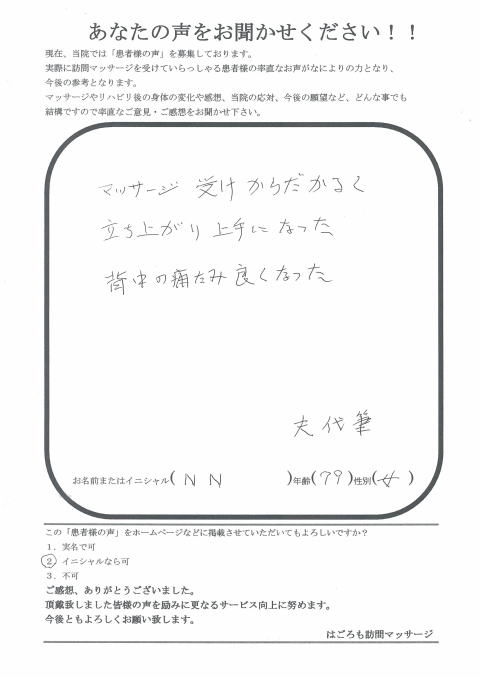 あなたの声をお聞かせください！！
現在、当院では「患者様の声」を募集しております。
実際に訪問マッサージを受けていらっしゃる患者様の率直なお声がなによりの力となり、
今後の参考となります。
マッサージやリハビリ後の身体の変化や感想、当院の応対、今後の願望など、どんな事でも
結構ですので率直なご意見・ご感想をお聞かせ下さい。
マッサージ 受け からだ かるく
立ち上がり 上手に なった
背中の痛たみ 良くなった
夫代筆
お名前またはイニシャル( N N )年齢(79)性別(女)
この「患者様の声」をホームページなどに掲載させていただいてもよろしいですか？
１．実名で可
２ イニシャルなら可
３．不可
ご感想、ありがとうございました。
頂戴致しました皆様の声を励みに更なるサービス向上に努めます。
今後ともよろしくお願い致します。
はごろも訪問マッサージ